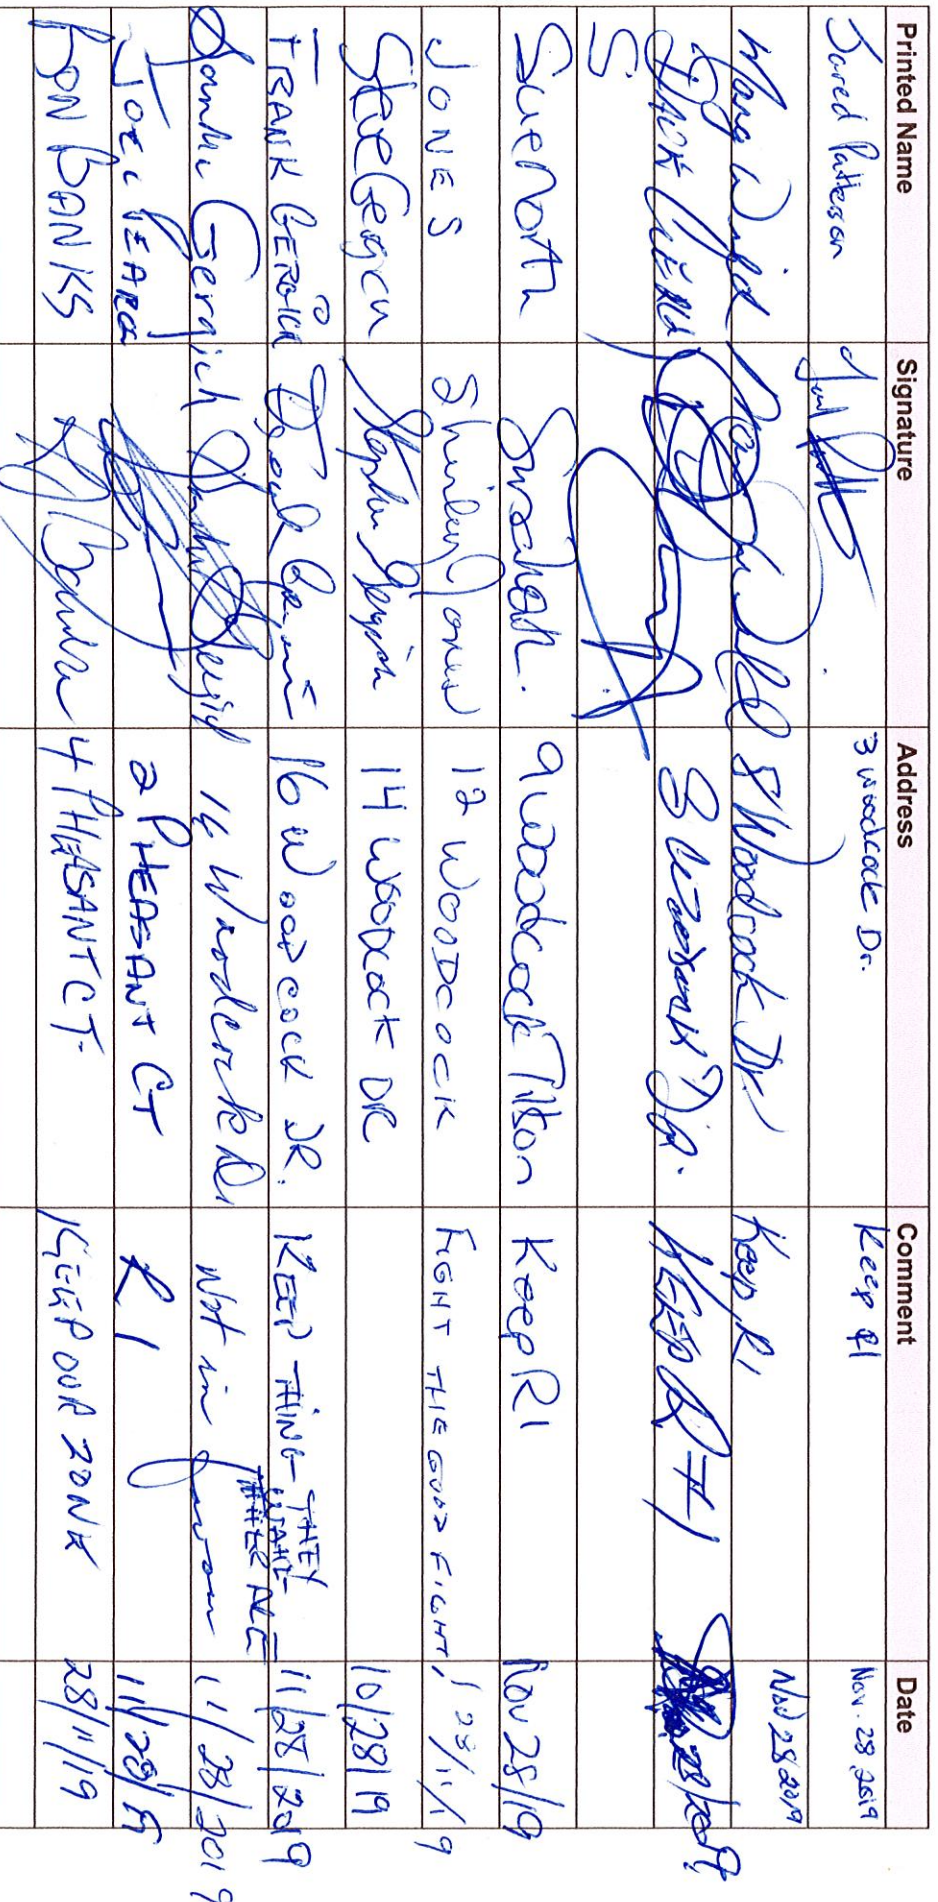 Printed Name Signature Address Comment Date
Jared Patterson 3 Woodcock Dr. Keep R1 Nov. 28, 2019
8 Woodcock Dr. Keep R1 Nov 28 2019
JACK 8 Dr. KEEP R #1
S
Sue North 9 Woodcock Tilson Keep R1 Nov 28/19
JONES Shirley Jones 12 WOODCOCK FIGHT THE GOOD FIGHT! 28/11/19
Steve Gergich Stephen Gergich 14 WOODCOCK DR 10/28/19
FRANK GERGICH Frank 16 WOODCOCK DR. KEEP THING THEY ARE 11/28/2019
Sandra Gergich 16 Woodcock Dr Not in favour 11/28/2019
JOEL 2 PHEASANT CT R1 11/28/19
RON BANKS R Banks 4 PHEASANT CT. KEEP OUR ZONE 28/11/19